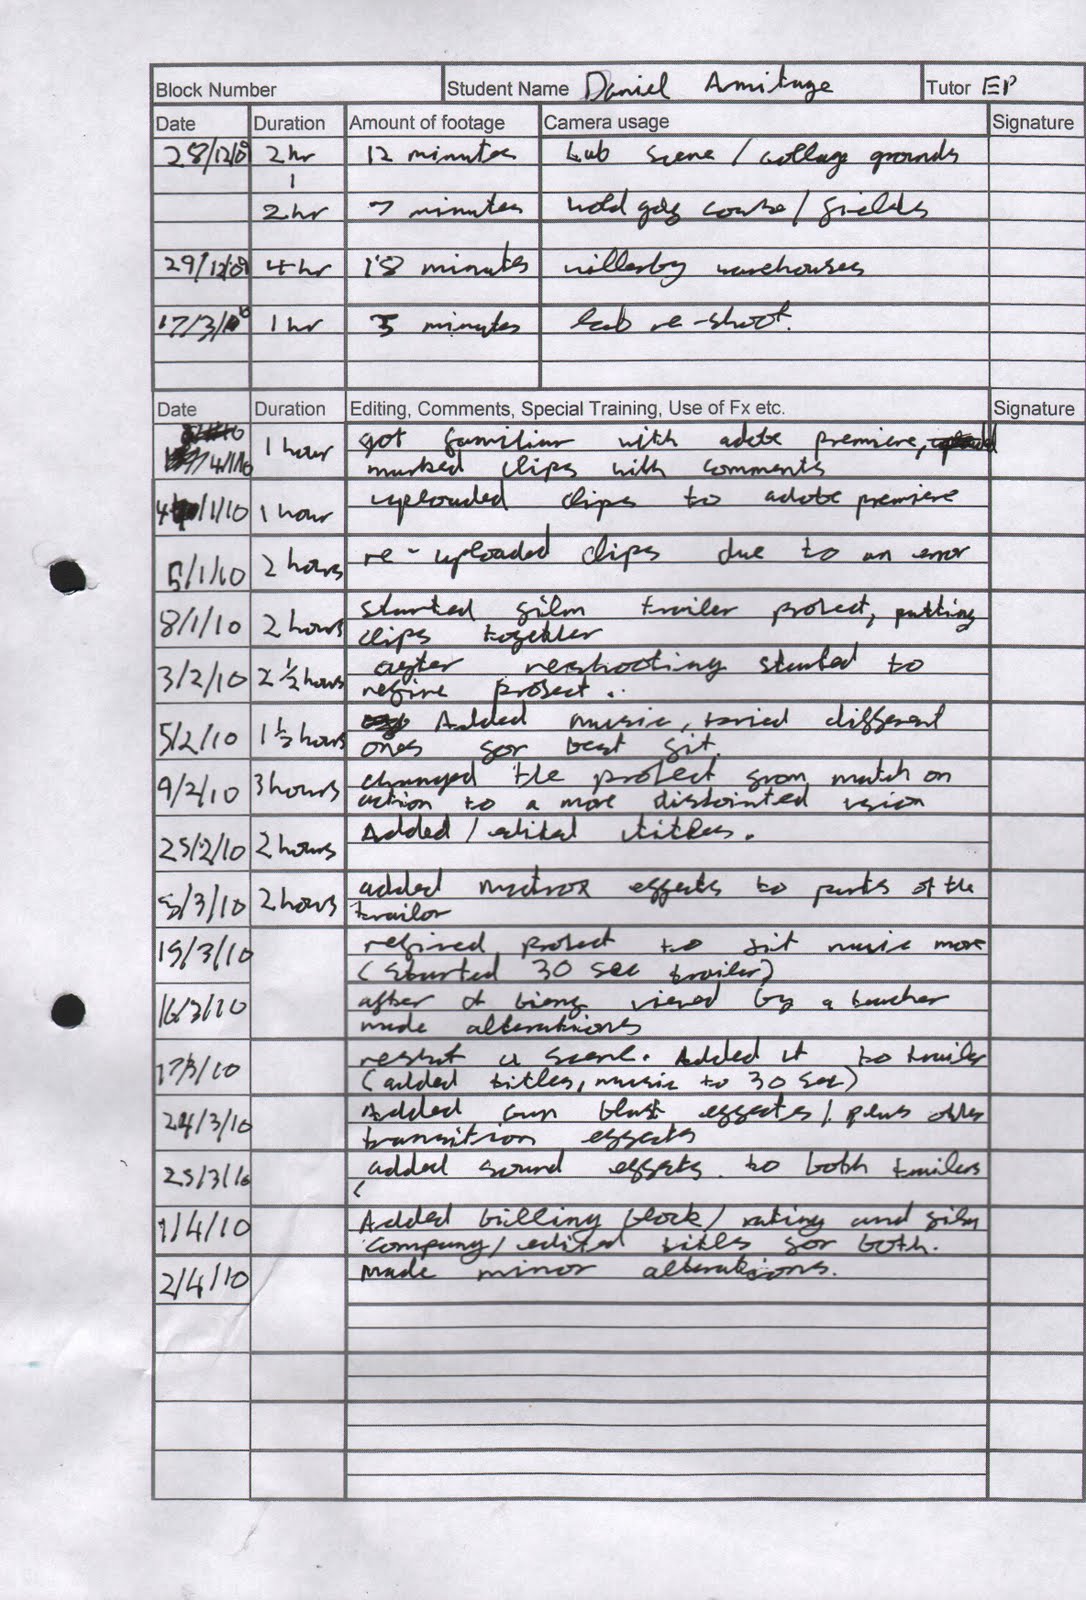 Block Number Student Name Daniel Armitage Tutor EP
Date Duration Amount of footage Camera usage Signature
28/12/09 2hr 12 minutes Lab scene / collage grounds
2hr 7 minutes wold gdg course / fields
29/12/09 4hr 18 minutes willerby warehouses
17/3/10 1hr 3 minutes Lab re-shoot.
Date Duration Editing, Comments, Special Training, Use of Fx etc. Signature
4/1/10 1 hour got familiar with adobe premiere,
marked clips with comments
4/1/10 1 hour uploaded clips to adobe premiere
5/1/10 2 hours re-uploaded clips due to an error
8/1/10 2 hours started film trailer project, putting
clips together
3/2/10 2 ½ hours after reshooting started to
refine project..
5/2/10 1 ½ hours Added music, tried different
ones for best fit.
9/2/10 3 hours changed the project from match on
action to a more disjointed vision
25/2/10 2 hours Added / edited titles.
5/3/10 2 hours added matrox effects to parts of the
trailor
15/3/10 refined project to fit music more
(started 30 sec trailer)
16/3/10 after it bieng viewed by a teacher
made alterations
17/3/10 reshot a scene. Added it to trailer
(added titles, music to 30 sec)
24/3/10 Added gun blast effects/ plus other
transition effects
25/3/10 added sound effects to both trailers
1/4/10 Added billing block/ rating and film
company/ edited titles for both.
2/4/10 Made minor alterations.